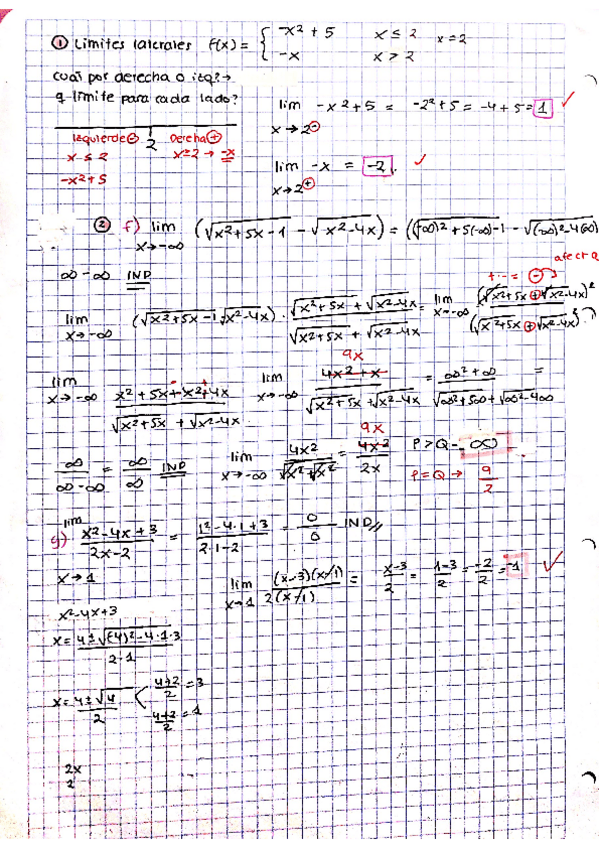 ① Límites laterales f(x) = { -x² + 5 x ≤ 2 x=2
-x x > 2
cual por derecha o izq? →
q limite para cada lado?
lim -x²+5 = -2²+5 = -4+5 = 1 ✓
x→2⊖
Izquierde ⊖ 2 Derecha ⊕
x ≤ 2 x=2 → -x
-x²+5
lim -x = -2. ✓
x→2⊕
② f) lim (√x²+5x-1 - √x²-4x) = (√(-∞)²+5(-∞)-1 - √(-∞)²-4(∞)
x→-∞
afecta
∞-∞ IND
+·- = ⊖
lim (√x²+5x-1 √x²-4x) · √x²+5x + √x²-4x / √x²+5x + √x²-4x = lim (√x²+5x ⊕ √x²-4x)² / (√x²+5x ⊕ √x²-4x)
x→-∞ x→-∞
9x
lim x²+5x+x²+4x / √x²+5x + √x²-4x lim 4x²+x / √x²+5x + √x²-4x = ∞²+∞ / √∞²+5∞+√∞²-4∞ =
x→-∞ x→-∞
9x
∞ / ∞-∞ = ∞ / ∞ IND lim 4x² / √x²+√x² = 4x² / 2x P>Q = -∞
x→-∞ P=Q → 9/2
g) lim x²-4x+3 / 2x-2 = 1²-4·1+3 / 2·1-2 = 0/0 IND//
x→1
lim (x-3)(x/1) / 2(x/1) = x-3 / 2 = 1-3 / 2 = -2/2 = -1 ✓
x→1
x²-4x+3
x = 4±√(-4)²-4·1·3 / 2·1
x = 4±√4 / 2 < 4+2 / 2 = 3
4+2 / 2 = 1
2x
2